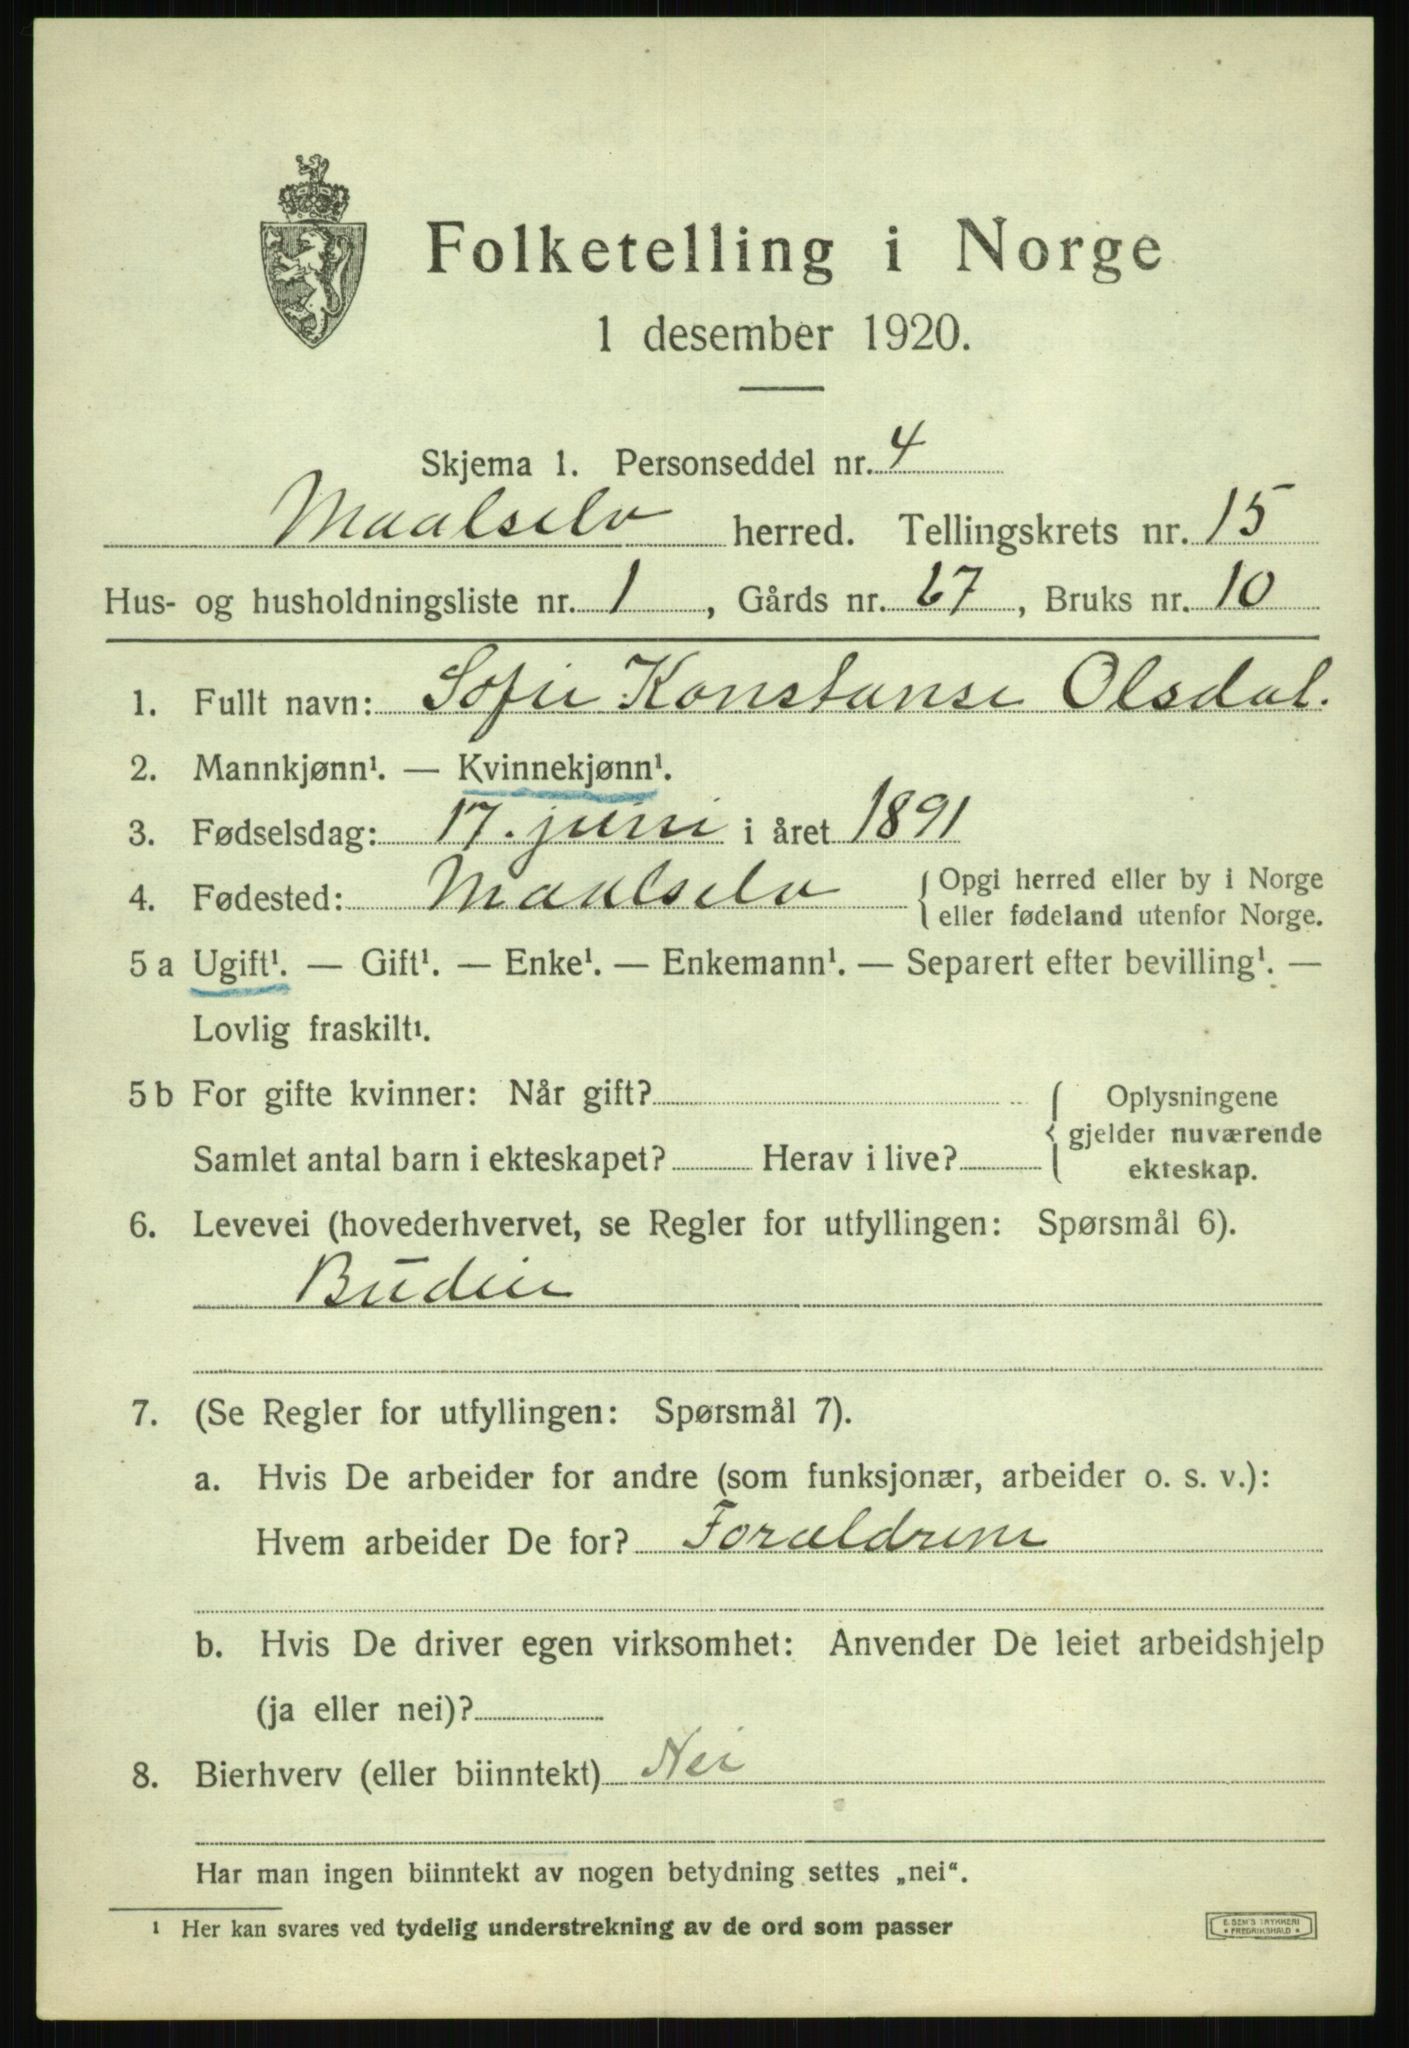 Folketelling i Norge
1 desember 1920.
Skjema 1. Personseddel nr. 4
Maalselv herred. Tellingskrets nr. 15
Hus- og husholdningsliste nr. 1, Gårds nr. 67, Bruks nr. 10
1. Fullt navn: Sofie Konstanse Olsdal.
2. Mannkjønn¹. — Kvinnekjønn¹.
3. Fødselsdag: 17. juni i året 1891
4. Fødested: Maalselv { Opgi herred eller by i Norge
eller fødeland utenfor Norge.
5 a Ugift¹. — Gift¹. — Enke¹. — Enkemann¹. — Separert efter bevilling¹. —
Lovlig fraskilt¹.
5 b For gifte kvinner: Når gift? { Oplysningene
gjelder nuværende
Samlet antal barn i ekteskapet? Herav i live? ekteskap.
6. Levevei (hovederhvervet, se Regler for utfyllingen: Spørsmål 6).
Budeie
7. (Se Regler for utfyllingen: Spørsmål 7).
a. Hvis De arbeider for andre (som funksjonær, arbeider o. s. v.):
Hvem arbeider De for? Forældrene
b. Hvis De driver egen virksomhet: Anvender De leiet arbeidshjelp
(ja eller nei)?
8. Bierhverv (eller biinntekt) Nei
Har man ingen biinntekt av nogen betydning settes „nei“.
¹ Her kan svares ved tydelig understrekning av de ord som passer
E. SEM'S TRYKKERI
• FREDRIKSHALD •